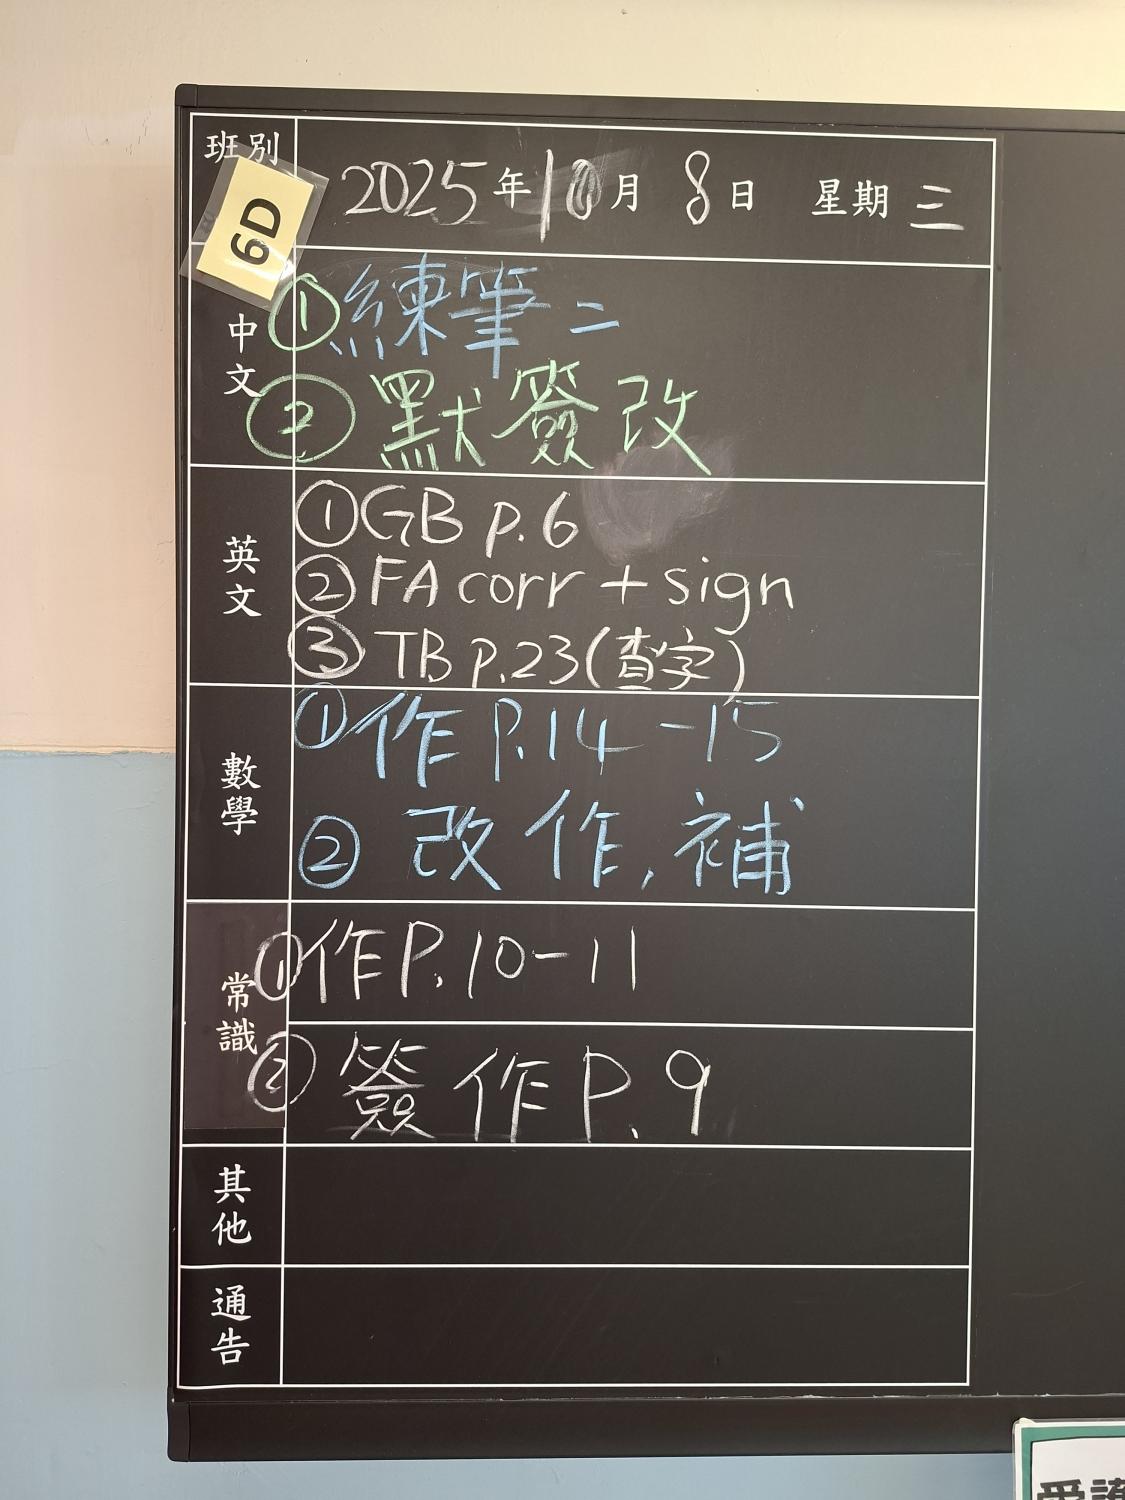 班別 2025年10月8日 星期三
6D
中文
①練筆二
②默簽改
英文
①GB p.6
②FA corr + sign
③TB p.23(查字)
數學
①作P.14-15
②改作,補
常識
①作P.10-11
②簽作P.9
其他
通告